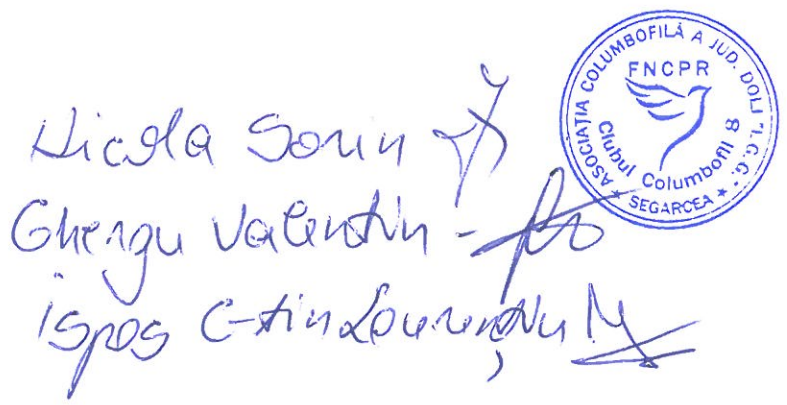 Nicola Sorin
Ghergu Valentin -
Ispas C-tin Laurențiu
ASOCIAȚIA COLUMBOFILĂ A JUD. DOLJ "I.C.C."
FNCPR
Clubul Columbofil 8
★ SEGARCEA ★